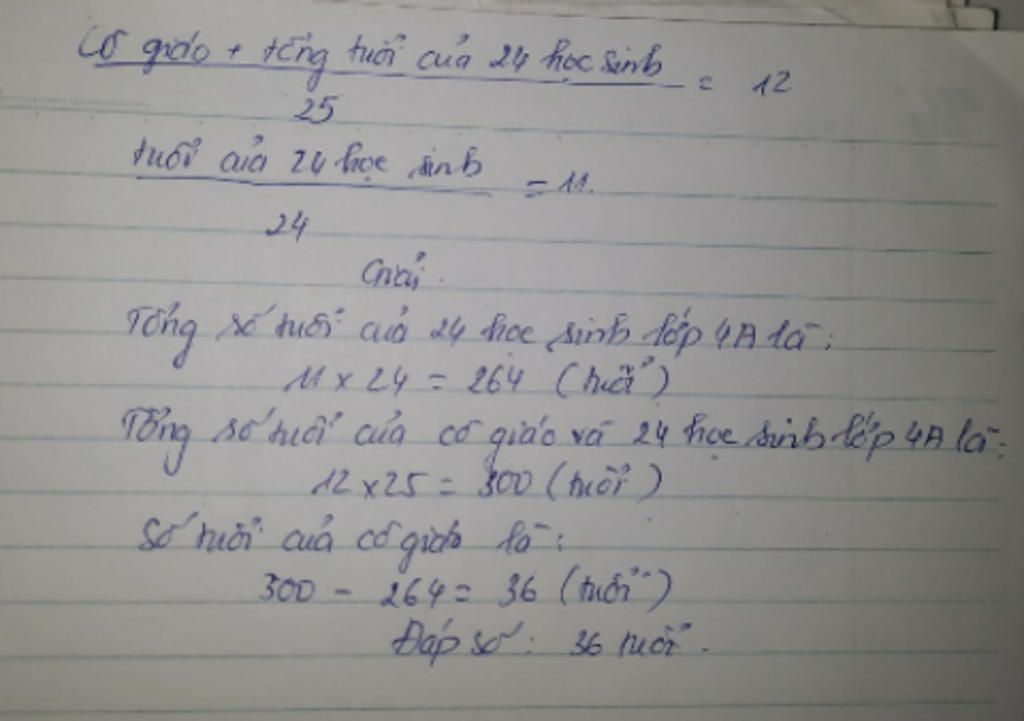 Cô giáo + tổng tuổi của 24 học sinh = 12
25
tuổi của 24 học sinh = 11.
24
Giải.
Tổng số tuổi của 24 học sinh lớp 4A là:
11 x 24 = 264 (tuổi)
Tổng số tuổi của cô giáo và 24 học sinh lớp 4A là:
12 x 25 = 300 (tuổi)
Số tuổi của cô giáo là:
300 - 264 = 36 (tuổi)
Đáp số: 36 tuổi.